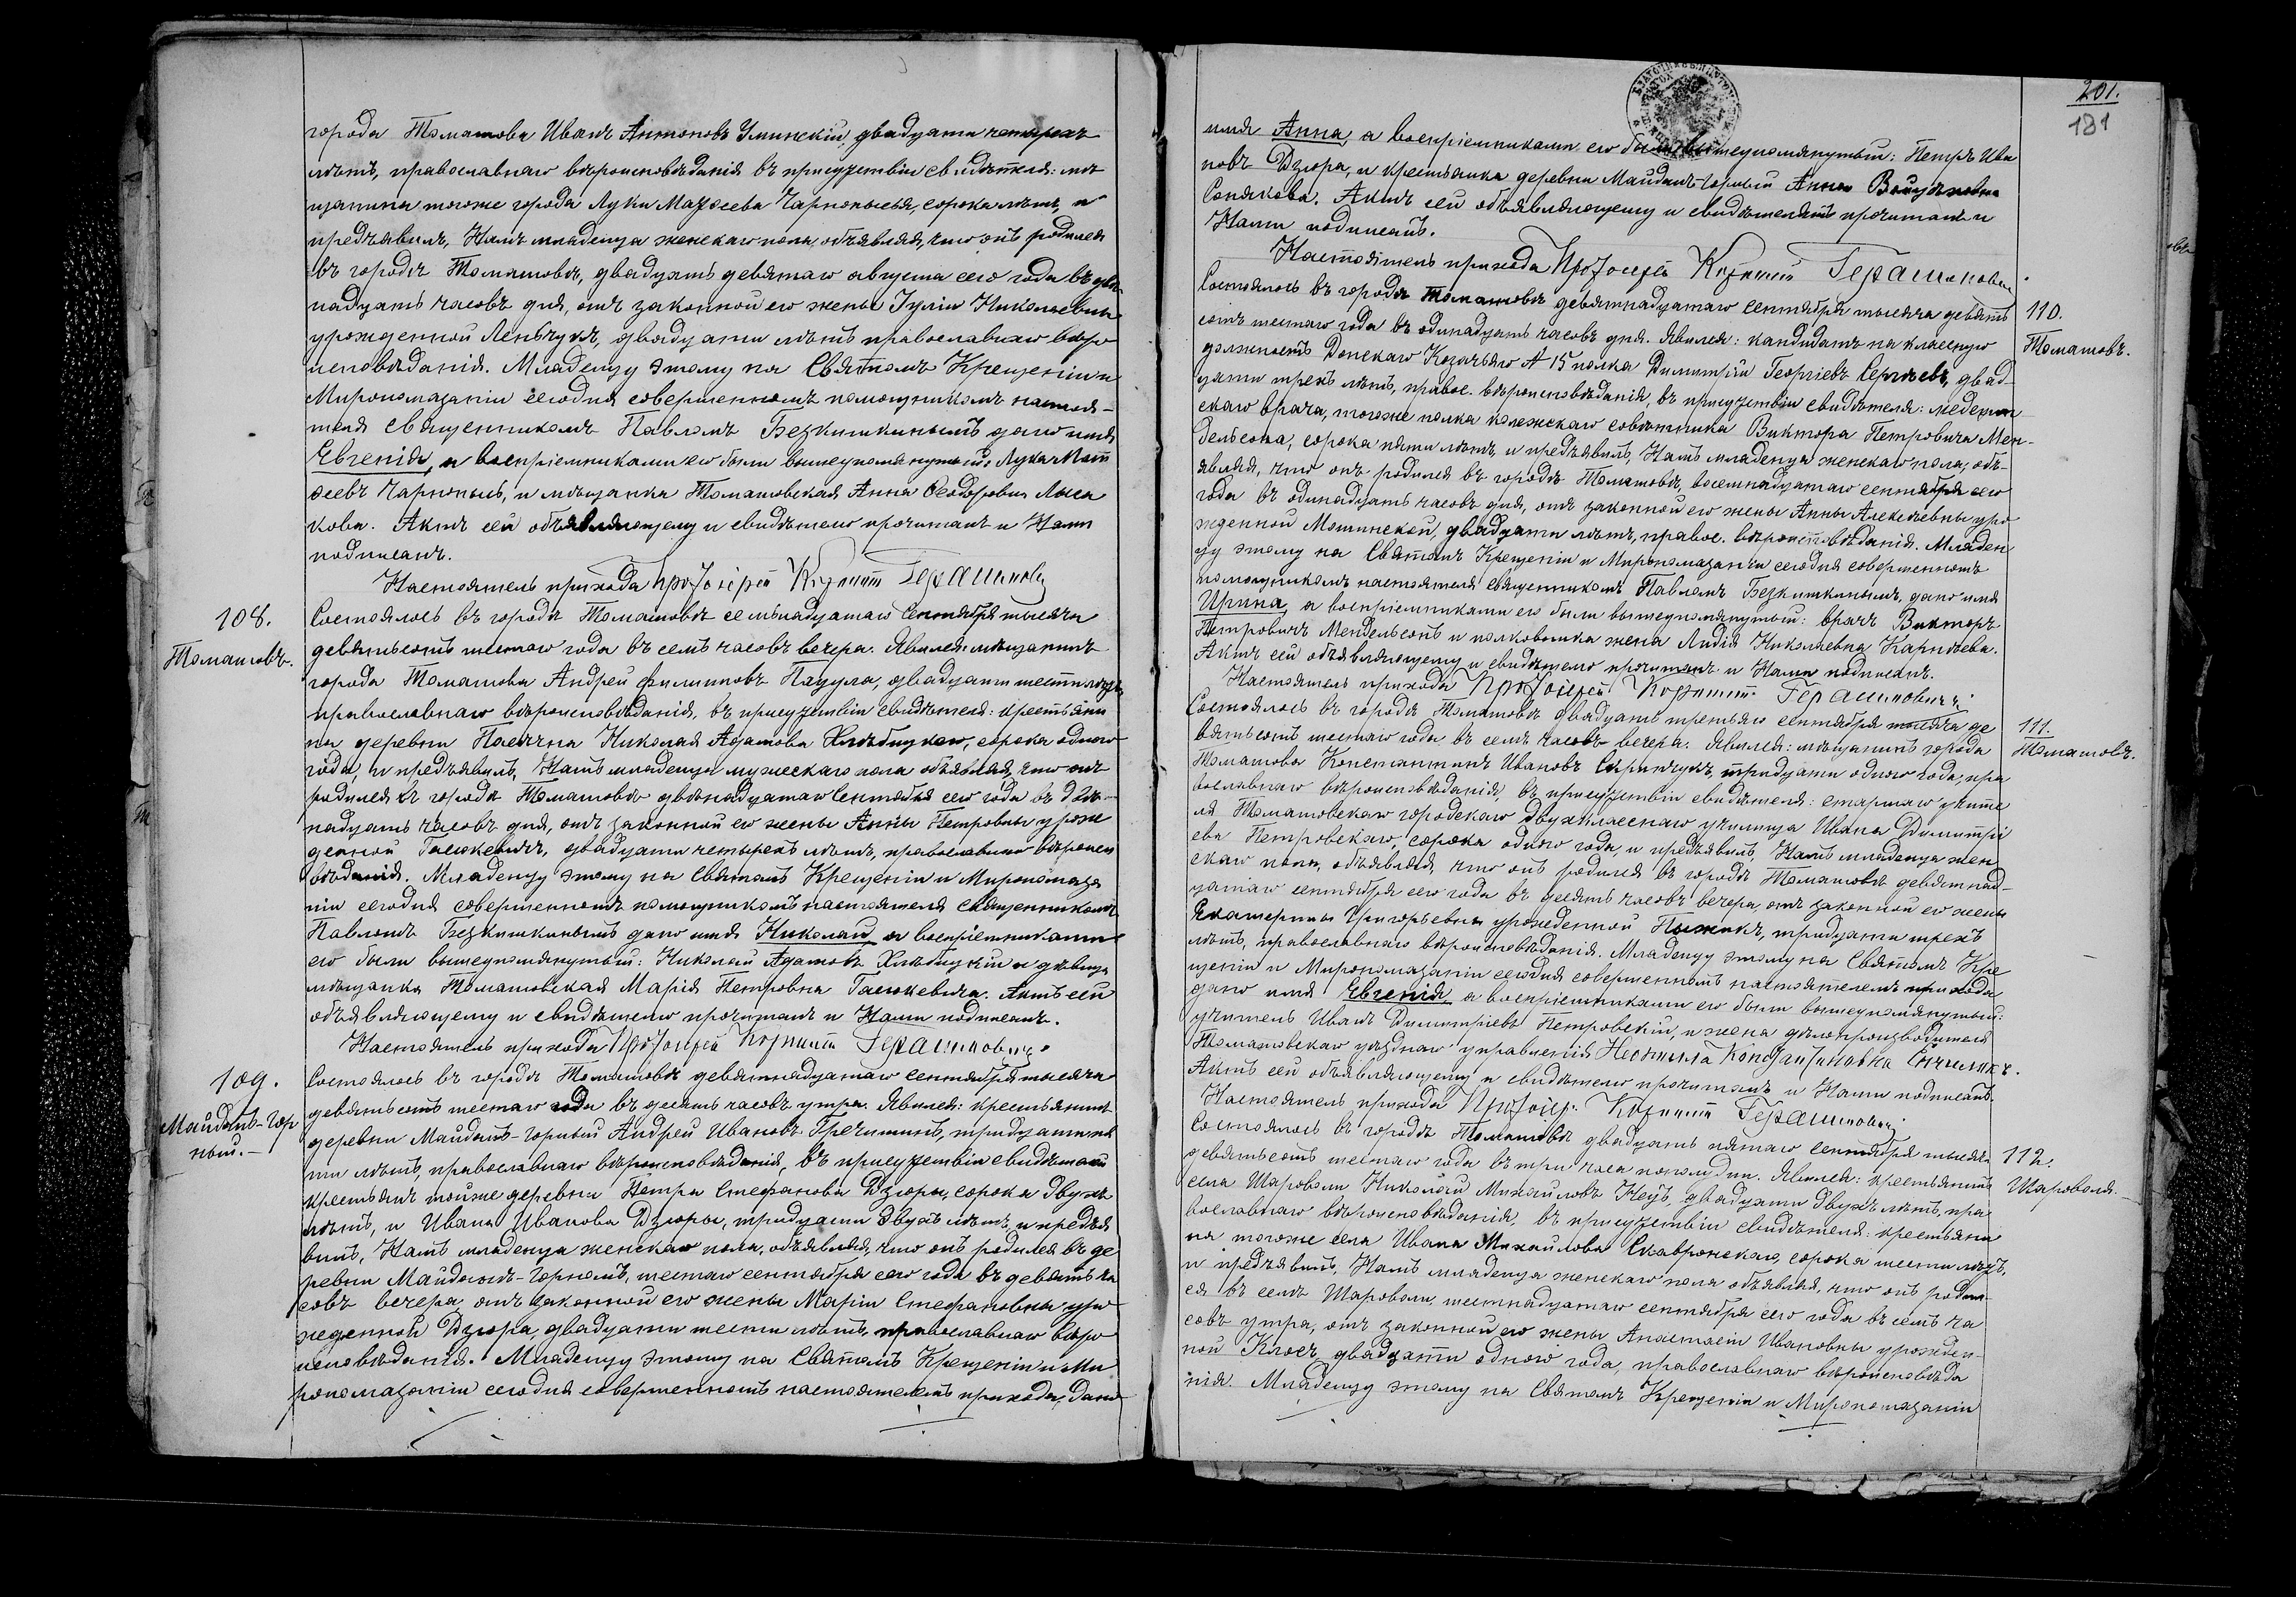 города Томашова Иванъ Антоновъ Уминскій, двадцати четырехъ
лѣтъ, православнаго вѣроисповѣданія въ присутствіи свидѣтеля: мѣ
щанина тогоже города Луки Матѳеева Чарнопыся, сорока лѣтъ, и
предъявилъ, Намъ младенца женскаго пола, объявляя, что онъ родился
въ городѣ Томашовѣ, двадцать девятаго августа сего года въ две-
надцать часовъ дня, отъ законной его жены Іуліи Николаевны
урожденной Леньчукъ, двадцати лѣтъ православнаго вѣро
исповѣданія. Младенцу этому на Святомъ Крещеніи и
Миропомазаніи сегодня совершенномъ помощникомъ настоя-
теля священникомъ Павломъ Безкишкинымъ дано имя
Евгенія, а воспріемниками его были вышеупомянутый: Лука Мат
ѳеевъ Чарнопысь, и мѣщанка Томашовская Анна Ѳеодоровна Лыса
кова. Актъ сей объявляющему и свидѣтелю прочитанъ и Нами
подписанъ.
Настоятель прихода Протоіерей Корнилій Герашиновичъ
108.
Томашовъ.
Состоялось въ городѣ Томашовѣ семьнадцатаго Сентября тысяча
девятьсотъ шестаго года въ семь часовъ вечера. Явился: мѣщанинъ
города Томашова Андрей Филиповъ Пацула, двадцати шести лѣтъ,
православнаго вѣроисповѣданія, въ присутствіи свидѣтеля: крестьяни
на деревни Пасѣчна Николая Адамова Хлѣбицкаго, сорока одного
года, и предъявилъ, Намъ младенца мужескаго пола объявляя, что онъ
родился въ городѣ Томашовѣ двѣнадцатаго Сентября сего года въ двѣ-
надцать часовъ дня, отъ законной его жены Анны Петровны урож
денной Гасюкевичъ, двадцати четырехъ лѣтъ, православнаго вѣроисп
овѣданія. Младенцу этому на Святомъ Крещеніи и Миропомаза
ніи сегодня совершенномъ помощникомъ настоятеля Священникомъ
Павломъ Безкишкинымъ дано имя Николай, а воспріемниками
его были вышеупомянутый: Николай Адамовъ Хлѣбицкій и дѣвица
мѣщанка Томашовская Марія Петровна Гасюкевича. Актъ сей
объявляющему и свидѣтелю прочитанъ и Нами подписанъ.
Настоятель прихода Протоіерей Корнилій Герашиновичъ
109.
Майданъ-Гор
ный.-
Состоялось въ городѣ Томашовѣ девятнадцатаго сентября тысяча
девятьсотъ шестаго года въ десять часовъ утра. Явился: крестьянинъ
деревни Майданъ-Горный Андрей Ивановъ Гречишинъ, тридцати пя
ти лѣтъ, православнаго вѣроисповѣданія, въ присутствіи свидѣтелей
крестьянъ тойже деревни Петра Стефанова Дзюры, сорока двухъ
лѣтъ, и Ивана Иванова Дзюры, тридцати двухъ лѣтъ, и предъя
вилъ, Намъ младенца женскаго пола, объявляя, что онъ родился въ де
ревни Майданѣ-Горномъ, шестаго сентября сего года въ девять ча
совъ вечера, отъ законной его жены Маріи Стефановны уро
жденной Дзюра, двадцати шести лѣтъ, православнаго вѣро
исповѣданія. Младенцу этому на Святомъ Крещеніи и Ми
ропомазаніи сегодня совершенномъ настоятелемъ прихода, дано
201.
181
имя Анна, а воспріемниками его были вышеупомянутый: Петръ Ива
новъ Дзюра, и крестьянка деревни Майданъ-Горный Анна
Конякова. Актъ сей объявляющему и свидѣтелямъ прочитанъ и
Нами подписанъ.
Настоятель прихода Протоіерей Корнилій Герашиновичъ
110.
Томашовъ.
Состоялось въ городѣ Томашовѣ девятнадцатаго сентября тысяча девять
сотъ шестаго года въ одинадцать часовъ дня. Явился: кандидатъ на классную
должность Донскаго Козачьяго № 15 полка Димитрій Георгіевъ Сергѣевъ, двад-
цати трехъ лѣтъ, правос. вѣроисповѣданія, въ присутствіи свидѣтеля: медецин
скаго врача, тогоже полка колежскаго совѣтника Виктора Петровича Мен-
дельсона, сорока пяти лѣтъ, и предъявилъ, Намъ младенца женскаго пола, объ-
являя, что онъ родился въ городѣ Томашовѣ, восемнадцатаго сентября сего
года въ одинадцать часовъ дня, отъ законной его жены Анны Алексѣевны уро
жденной Мошинской, двадцати лѣтъ, правос. вѣроисповѣданія. Младен
цу этому на Святомъ Крещеніи и Миропомазаніи сегодня совершенномъ
помощникомъ настоятеля священникомъ Павломъ Безкишкинымъ, дано имя
Ирина, а воспріемниками его были вышеупомянутый: врачъ Викторъ
Петровичъ Мендельсонъ и полковника жена Лидія Николаевна Карпѣева.
Актъ сей объявляющему и свидѣтелю прочитанъ и Нами подписанъ.
Настоятель прихода Протоіерей Корнилій Герашиновичъ
111.
Томашовъ.
Состоялось въ городѣ Томашовѣ двадцать третьяго сентября тысяча де
вятьсотъ шестаго года въ семь часовъ вечера. Явился: мѣщанинъ города
Томашова Константинъ Ивановъ Скринчукъ, тридцати одного года, пра
вославнаго вѣроисповѣданія, въ присутствіи свидѣтеля: старшаго учите
ля Томашовскаго городскаго двухкласснаго училища Ивана Димитрі
ева Петровскаго, сорока одного года, и предъявилъ, Намъ младенца жен
скаго пола, объявляя, что онъ родился въ городѣ Томашовѣ девятнад-
цатаго сентября сего года въ десять часовъ вечера, отъ законной его жены
Екатерины Григорьевны урожденной тридцати трехъ
лѣтъ, православнаго вѣроисповѣданія. Младенцу этому на Святомъ Кре
щеніи и Миропомазаніи сегодня совершенномъ настоятелемъ прихода
дано имя Евгенія, а воспріемниками его были вышеупомянутый:
учитель Иванъ Димитріевъ Петровскій, и жена дѣлопроизводителя
Томашовскаго уѣзднаго управленія Константиновна
Актъ сей объявляющему и свидѣтелю прочитанъ и Нами подписанъ.
Настоятель прихода Протоіер. Корнилій Герашиновичъ
112.
Шароволя.
Состоялось въ городѣ Томашовѣ двадцать пятаго сентября тысяча
девятьсотъ шестаго года въ три часа пополудни. Явился: крестьянинъ
села Шароволи Николай Михайловъ Кеуъ, двадцати двухъ лѣтъ, пра
вославнаго вѣроисповѣданія, въ присутствіи свидѣтеля: крестьяни
на тогоже села Ивана Михайлова Скавронскаго, сорока шести лѣтъ,
и предъявилъ, Намъ младенца женскаго пола объявляя, что онъ родил
ся въ селѣ Шароволи, шестнадцатаго сентября сего года въ семь ча
совъ утра, отъ законной его жены Анастасіи Ивановны урожден-
ной Клосъ, двадцати одного года, православнаго вѣроисповѣда
нія. Младенцу этому на Святомъ Крещеніи и Миропомазаніи